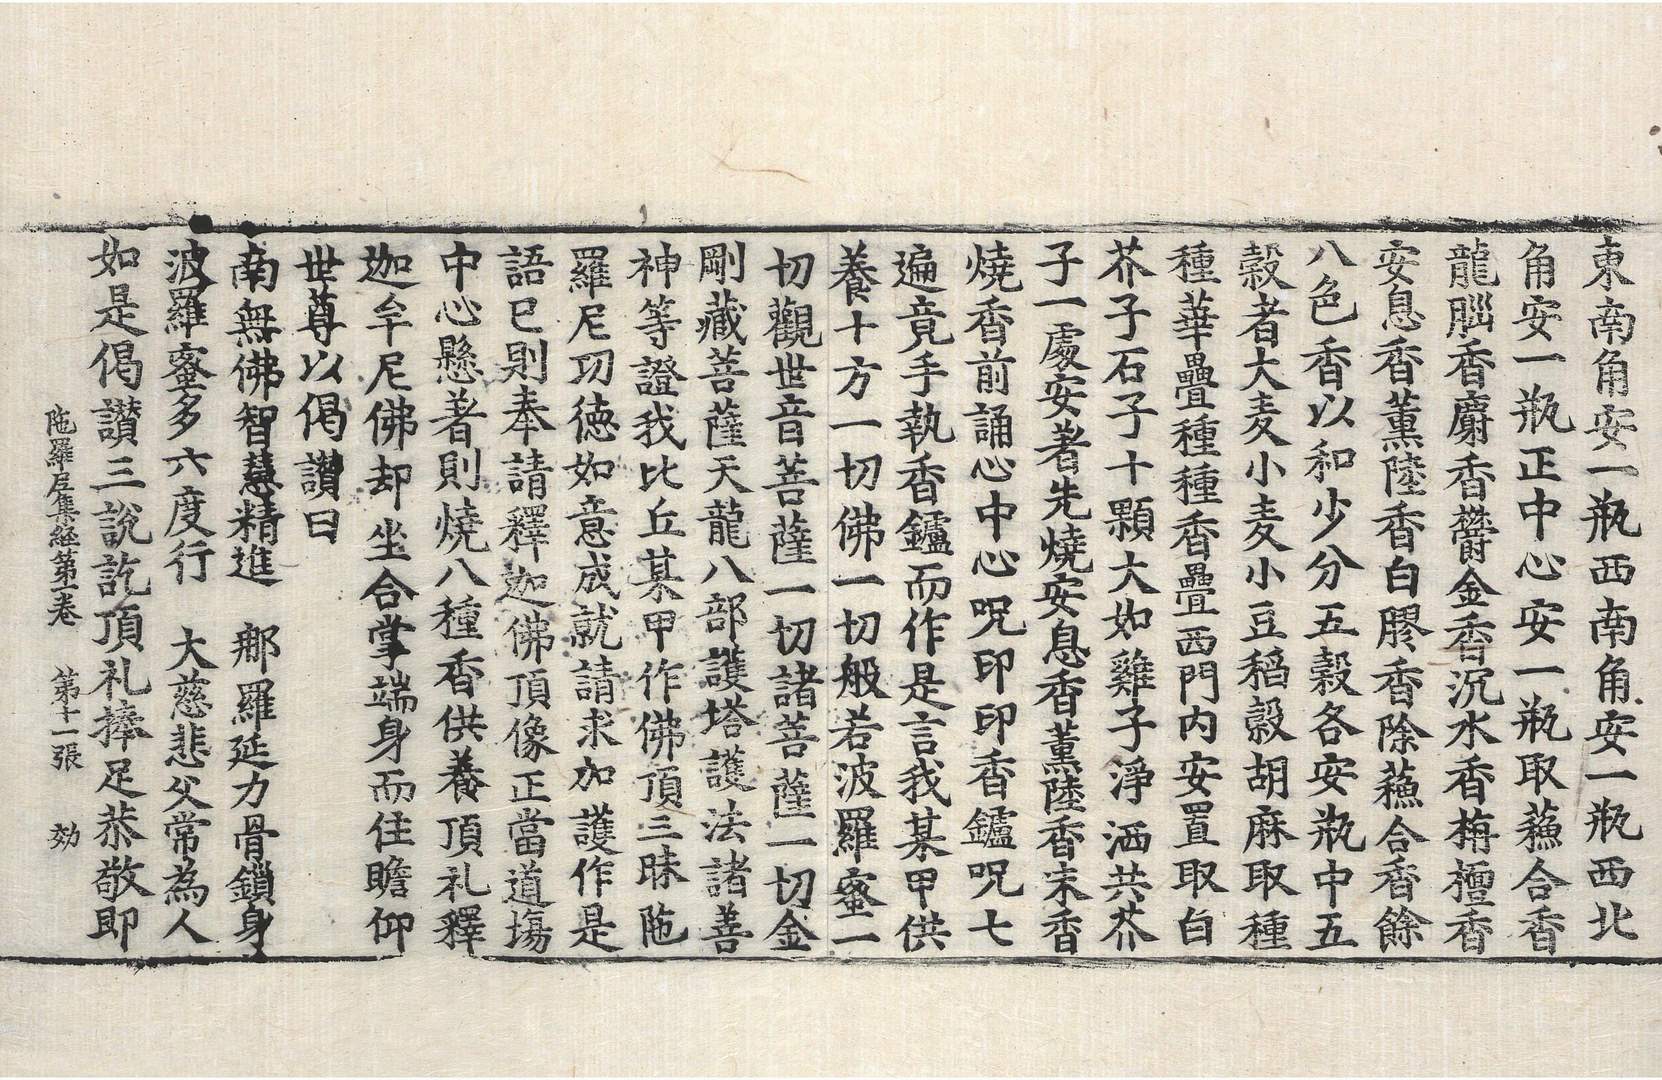 東南角安一瓶西南角安一瓶西北
角安一瓶正中心安一瓶取蘓合香
龍腦香麝香欝金香沉水香栴檀香
安息香薰陸香白膠香除蘓合香餘
八色香以和少分五穀各安瓶中五
穀者大麦小麦小豆稻穀胡麻取種
種華疊種種香疊西門内安置取白
芥子石子十顆大如雞子淨洒共芥
子一處安著先燒安息香薰陸香末香
燒香前誦心中心呪印印香鑪呪七
遍竟手執香鑪而作是言我某甲供
養十方一切佛一切般若波羅蜜一
切觀世音菩薩一切諸菩薩一切金
剛藏菩薩天龍八部護塔護法諸善
神等證我比丘某甲作佛頂三昧陁
羅尼功徳如意成就請求加護作是
語已則奉請釋迦佛頂像正當道塲
中心懸著則燒八種香供養頂礼釋
迦牟尼佛却坐合掌端身而住瞻仰
世尊以偈讃曰
南無佛智慧精進　那羅延力骨鎖身
波羅蜜多六度行　大慈悲父常為人
如是偈讃三說訖頂礼捧足恭敬即
陁羅尼集経第一卷　第十一張　効